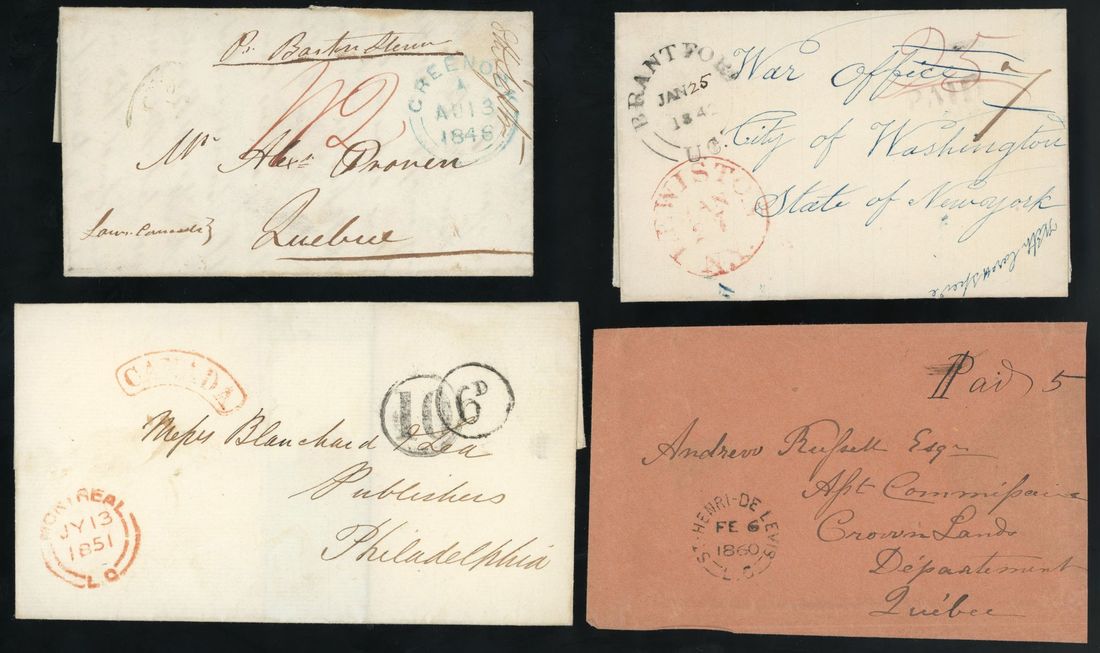 Pr Barton Stewn
1/2
GREENOCK
AU 13
1846
Mr Alexr Proven
Quebec
BRANTFORD
JAN 25
184
U.C.
War Office
25
PAID
7
City of Washington
State of Newyork
LEWISTON
N.Y.
With
CANADA
10
6D
Messrs Blanchard & Lea
Publishers
Philadelphia
MONTREAL
JY 13
1851
L.C
Paid 5
Andrew Russell Esqr
Asst Commissaire
Crown Lands
Département
Québec
ST. HENRI-DE LEVIS
FE 6
1860
L.C